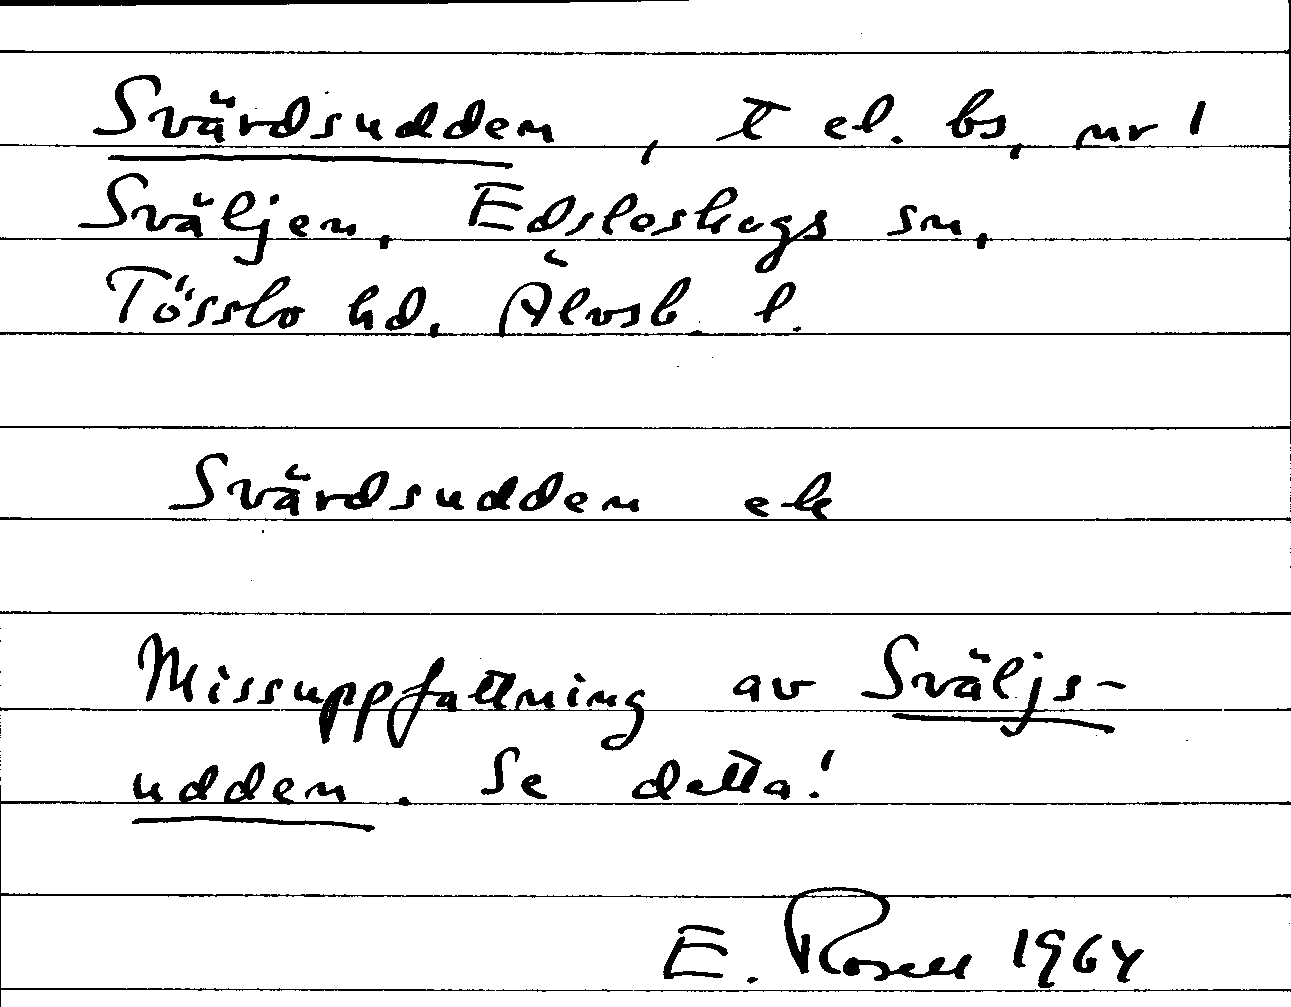 Svärdsudden, t el. bs, nr 1
Sväljen, Edsleskogs sn,
Tössbo hd. Älvsb. l.
Svärdsudden ek
Missuppfattning av Sväljs-
udden. Se detta!
E. Rosell 1964